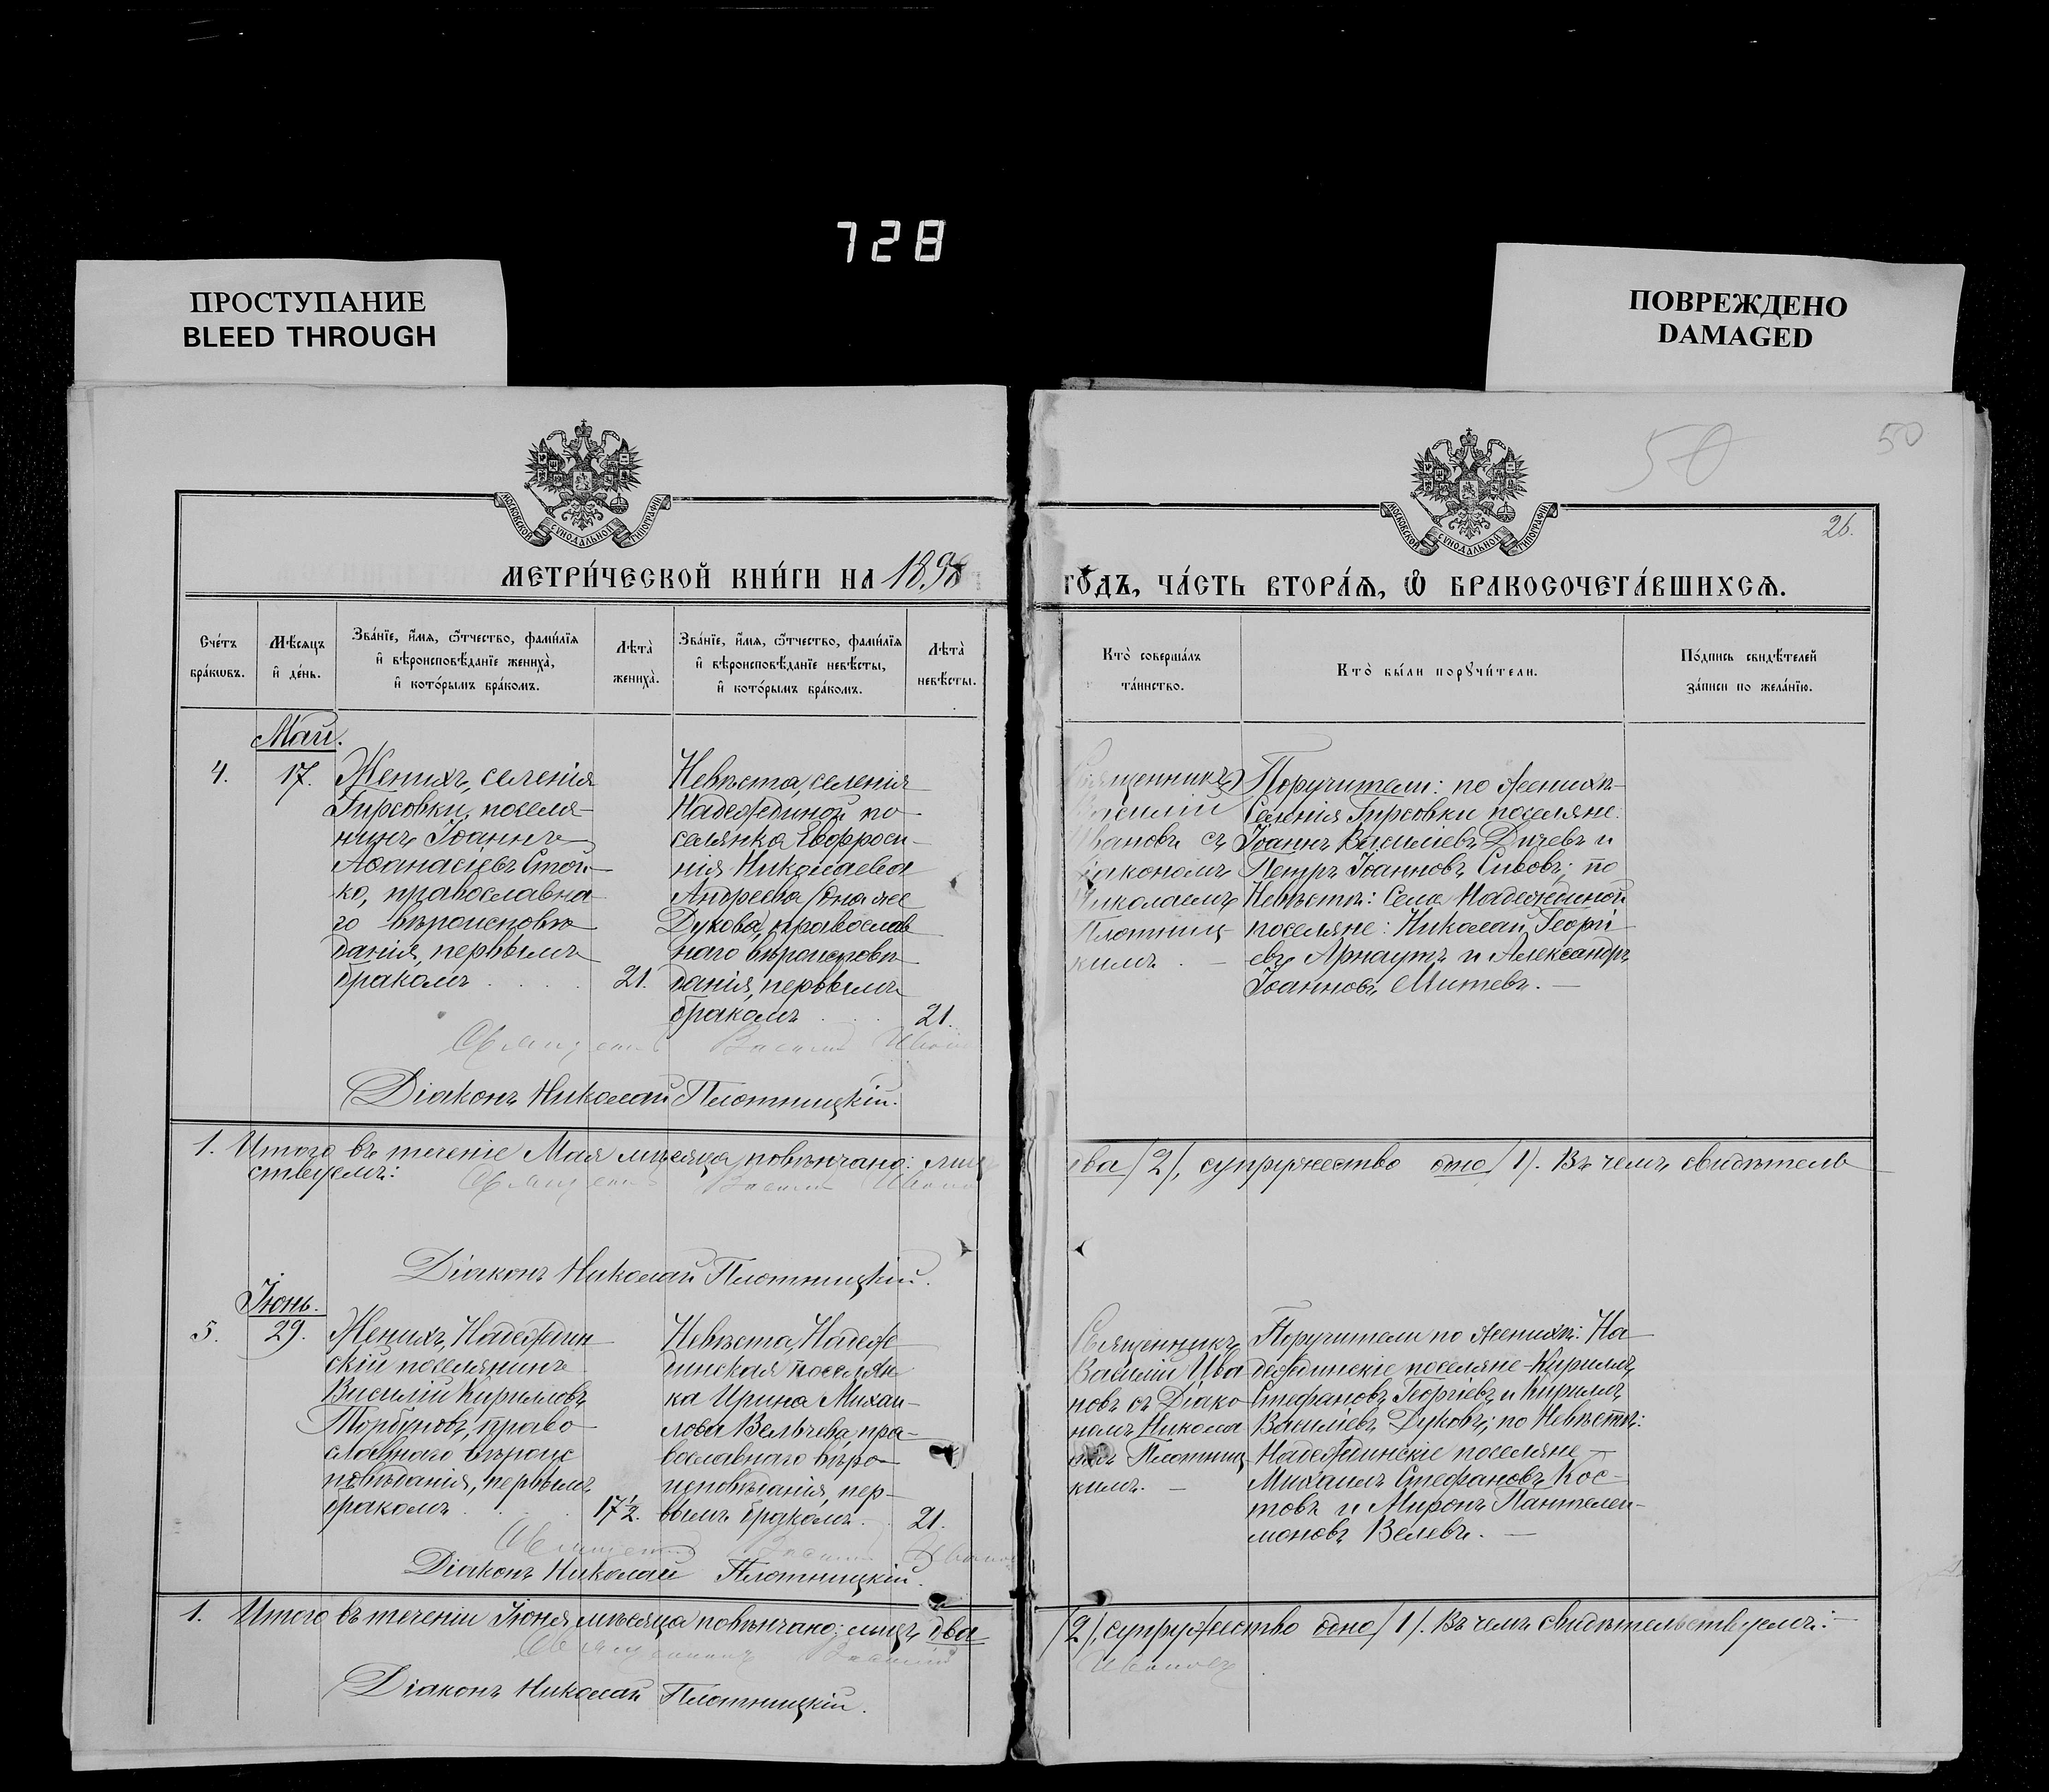 728
ПРОСТУПАНИЕ
BLEED THROUGH
ПОВРЕЖДЕНО
DAMAGED
50
50
26.
МОСКОВСКОЙ СѴНОДАЛЬНОЙ ТИПОГРАФІИ
МОСКОВСКОЙ СѴНОДАЛЬНОЙ ТИПОГРАФІИ
МЕТРИ́ЧЕСКОЙ КНИ́ГИ НА 1898
ГО́ДЪ, ЧА́СТЬ ВТОРА́Ѧ, Ѽ БРАКОСОЧЕТА́ВШИХСѦ.
Сче́тъ
бра́кѡвъ.
Мѣ́сяцъ
и҆ де́нь.
Зва́нїе, и҆́мѧ, ѻ҆́тчество, фами́лїѧ
и҆ вѣроисповѣ́данїе жениха̀,
и҆ кото́рымъ бра́комъ.
Лѣта̀
жениха̀.
Зва́нїе, и҆́мѧ, ѻ҆́тчество, фами́лїѧ
и҆ вѣроисповѣ́данїе невѣ́сты,
и҆ кото́рымъ бра́комъ.
Лѣта̀
невѣ́сты.
Кто̀ соверша́лъ
та́инство.
Кто̀ бы́ли порꙋчи́тели.
По́дпись свидѣ́телей
за́писи по жела́нїю.
Май.
4.
17.
Женихъ, селенія
Гирсовки, поселя-
нинъ Іоаннъ
Аѳанасіевъ Стой-
ко, православна-
го вѣроисповѣ-
данія, первымъ
бракомъ
21.
Невѣста, селенія
Надеждиной по-
селянка Евфроси-
нія Николаева
Андреева /она же
Дукова, православ
наго вѣроисповѣ-
данія, первымъ
бракомъ
21.
Священникъ
Василий
Ивановъ съ
Діакономъ
Николаемъ
Плотниц
кимъ. —
Поручители: по женихѣ-
Селенія Гирсовки поселяне:
Іоаннъ Василіевъ Дичевъ и
Петръ Іоанновъ Сивовъ; по
Невѣстѣ: Села Надеждиной
поселяне: Николай Георгі
евъ Арнаутъ и Александръ
Іоанновъ Митевъ. —
Священникъ Василий Иванов
Діаконъ Николай Плотницкій.
1. Итого въ теченіе Мая мѣсяца повѣнчано: лицъ
два /2/, супружество одно /1/. Въ чемъ свидѣтель
ствуемъ:
Священникъ Василий Иванов
Діаконъ Николай Плотницкій.
Іюнь.
5.
29.
Женихъ, Надеждин
скій поселянинъ
Василій Кирилловъ
Торбуновъ, право-
славнаго вѣроис
повѣданія, первымъ
бракомъ
17½.
Невѣста, Надеж
динская поселян
ка Ирина Михаи-
лова Вельчева, пра-
вославнаго вѣро-
исповѣданія, пер-
вымъ бракомъ.
21.
Священникъ
Василій Ива
новъ съ Діако
номъ Никола
емъ Плотниц
кимъ. —
Поручители по женихѣ: На-
деждинскіе поселяне-Кириллъ
Стефановъ Георгіевъ и Кириллъ
Василіевъ Дуковъ; по Невѣстѣ:
Надеждинскіе поселяне —
Михаилъ Стефановъ Кос-
товъ и Миронъ Пантелеи-
моновъ Велевъ. —
Священникъ Василий Иванов
Діаконъ Николай Плотницкій.
1. Итого въ теченіи Іюня мѣсяца повѣнчано: лицъ два
/2/, супружество одно /1/. Въ чемъ свидѣтельствуемъ: —
Священникъ Василий
Ивановъ
Діаконъ Николай Плотницкій.